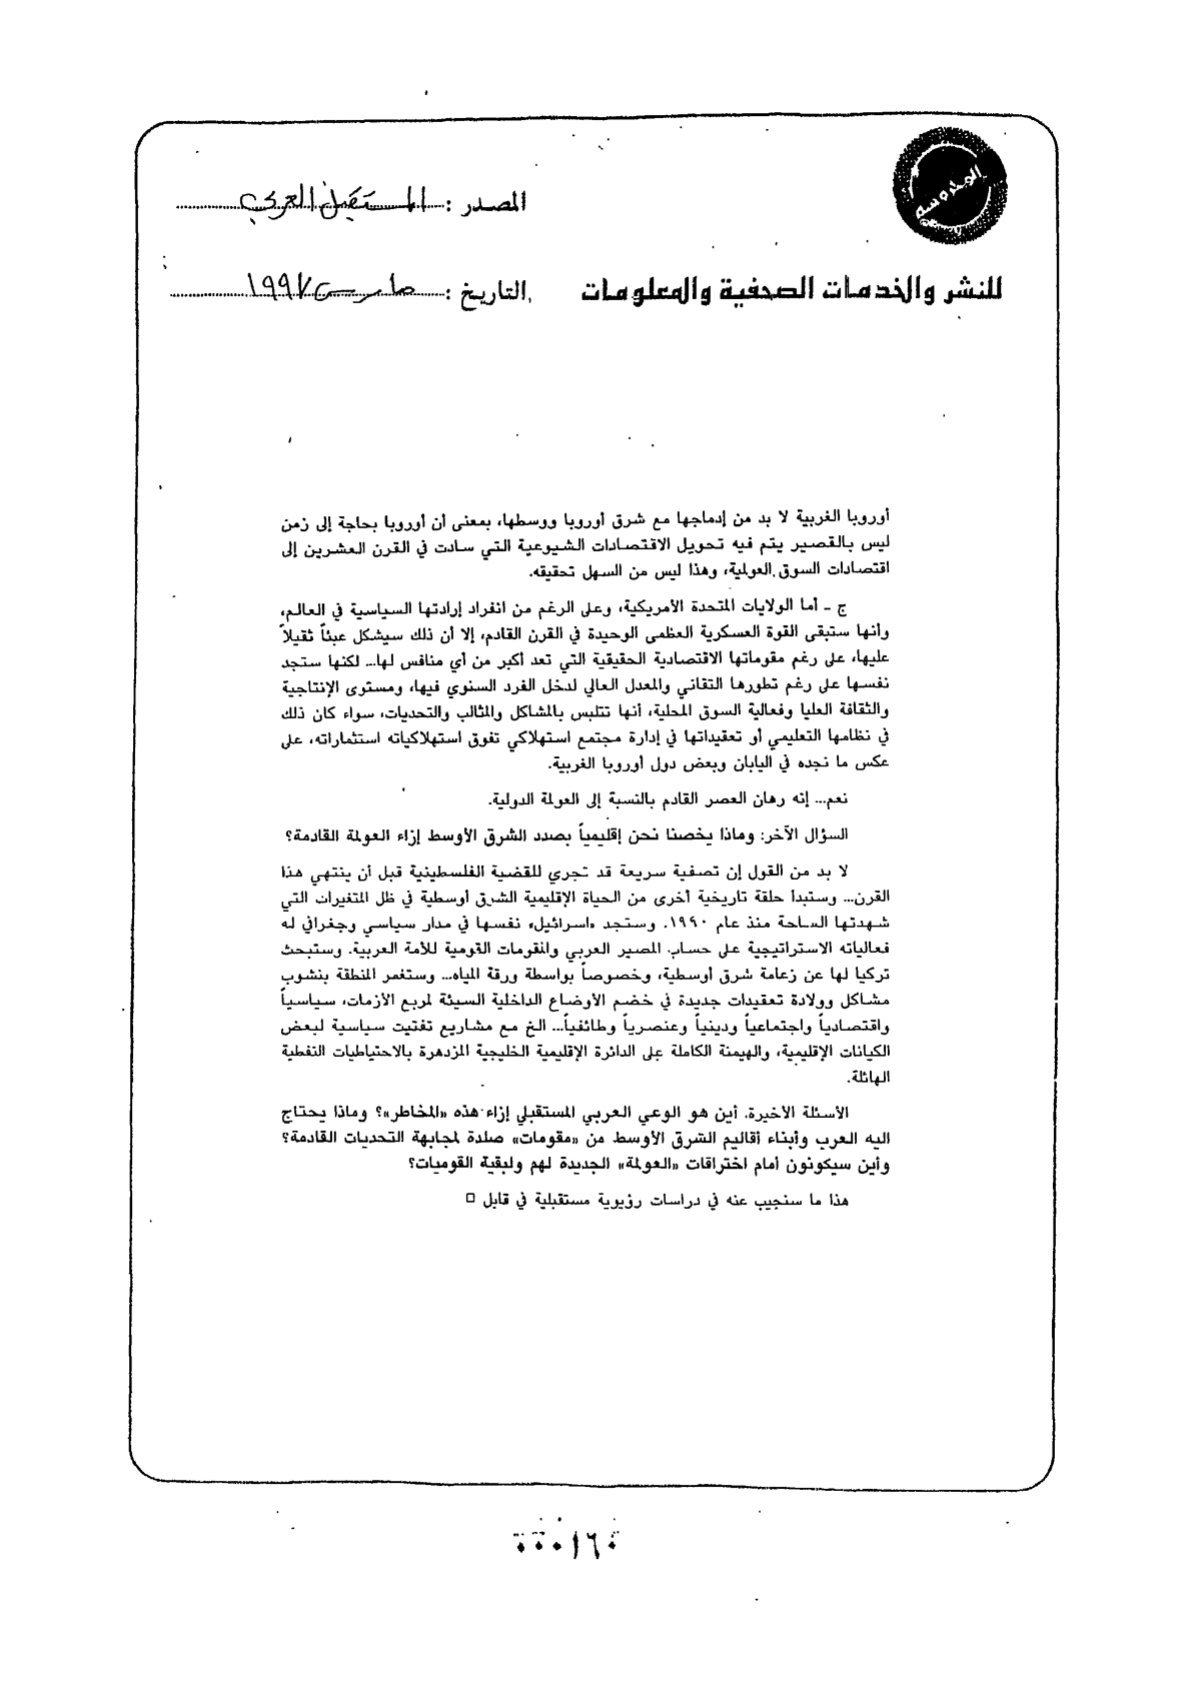 المحروسة
المصدر : المستقبل العربي
للنشر والخدمات الصحفية والمعلومات
التاريخ : مارس ١٩٩٧
أوروبا الغربية لا بد من إدماجها مع شرق أوروبا ووسطها، بمعنى أن أوروبا بحاجة إلى زمن
ليس بالقصير يتم فيه تحويل الاقتصادات الشيوعية التي سادت في القرن العشرين إلى
اقتصادات السوق العولمية، وهذا ليس من السهل تحقيقه.
ج - أما الولايات المتحدة الأمريكية، وعلى الرغم من انفراد إرادتها السياسية في العالم،
وأنها ستبقى القوة العسكرية العظمى الوحيدة في القرن القادم، إلا أن ذلك سيشكل عبئاً ثقيلاً
عليها، على رغم مقوماتها الاقتصادية الحقيقية التي تعد أكبر من أي منافس لها... لكنها ستجد
نفسها على رغم تطورها التقاني والمعدل العالي لدخل الفرد السنوي فيها، ومستوى الإنتاجية
والثقافة العليا وفعالية السوق المحلية، أنها تتلبس بالمشاكل والمثالب والتحديات، سواء كان ذلك
في نظامها التعليمي أو تعقيداتها في إدارة مجتمع استهلاكي تفوق استهلاكياته استثماراته، على
عكس ما نجده في اليابان وبعض دول أوروبا الغربية.
نعم... إنه رهان العصر القادم بالنسبة إلى العولمة الدولية.
السؤال الآخر: وماذا يخصنا نحن إقليمياً بصدد الشرق الأوسط إزاء العولمة القادمة؟
لا بد من القول إن تصفية سريعة قد تجري للقضية الفلسطينية قبل أن ينتهي هذا
القرن... وستبدأ حلقة تاريخية أخرى من الحياة الإقليمية الشرق أوسطية في ظل المتغيرات التي
شهدتها الساحة منذ عام ١٩٩٠. وستجد «اسرائيل» نفسها في مدار سياسي وجغرافي له
فعالياته الاستراتيجية على حساب المصير العربي والمقومات القومية للأمة العربية. وستبحث
تركيا لها عن زعامة شرق أوسطية، وخصوصاً بواسطة ورقة المياه... وستغمر المنطقة بنشوب
مشاكل وولادة تعقيدات جديدة في خضم الأوضاع الداخلية السيئة لمربع الأزمات، سياسياً
واقتصادياً واجتماعياً ودينياً وعنصرياً وطائفياً... الخ مع مشاريع تفتيت سياسية لبعض
الكيانات الإقليمية، والهيمنة الكاملة على الدائرة الإقليمية الخليجية المزدهرة بالاحتياطيات النفطية
الهائلة.
الأسئلة الأخيرة. أين هو الوعي العربي المستقبلي إزاء هذه «المخاطر»؟ وماذا يحتاج
اليه العرب وأبناء أقاليم الشرق الأوسط من «مقومات» صلدة لمجابهة التحديات القادمة؟
وأين سيكونون أمام اختراقات «العولمة» الجديدة لهم ولبقية القوميات؟
هذا ما سنجيب عنه في دراسات رؤيوية مستقبلية في قابل □
٠٠٠١٦٠